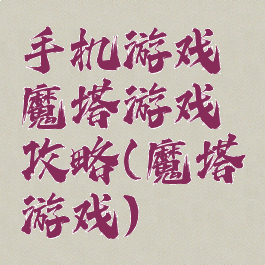 手机游戏
魔塔游戏
攻略(魔塔
游戏)